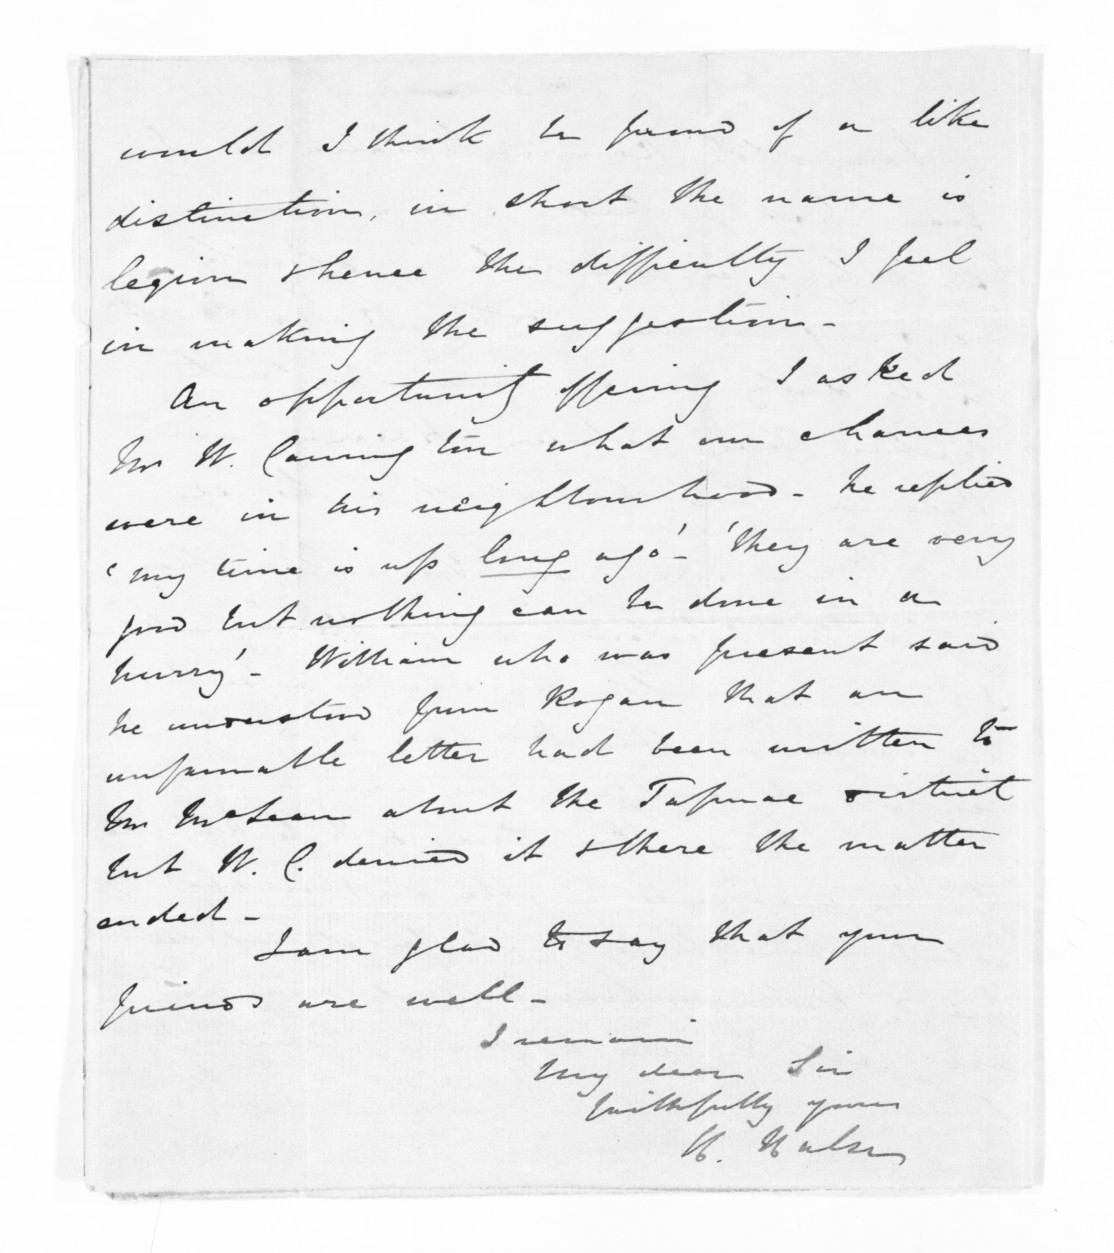 would I think be proud of a like
distinction, in short the name is
legion & hence the difficulty I feel
in making the suggestion -
An opportunity offering I asked
Mr W. Cannington what our chances
were in his neighbourhood - he replied
'my time is up long ago' - 'they are very
good but nothing can be done in a
hurry' - William who was present said
he understood from Rogan that an
unfavourable letter had been written to
Mr McLean about the district
but W. C. denied it & there the matter
ended -
I am glad to say that your
friends are well -
I remain
My dear Sir
faithfully yours
H. Halse